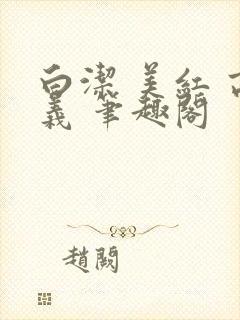 白潔 美紅 高
義 筆趣閣
趙闕